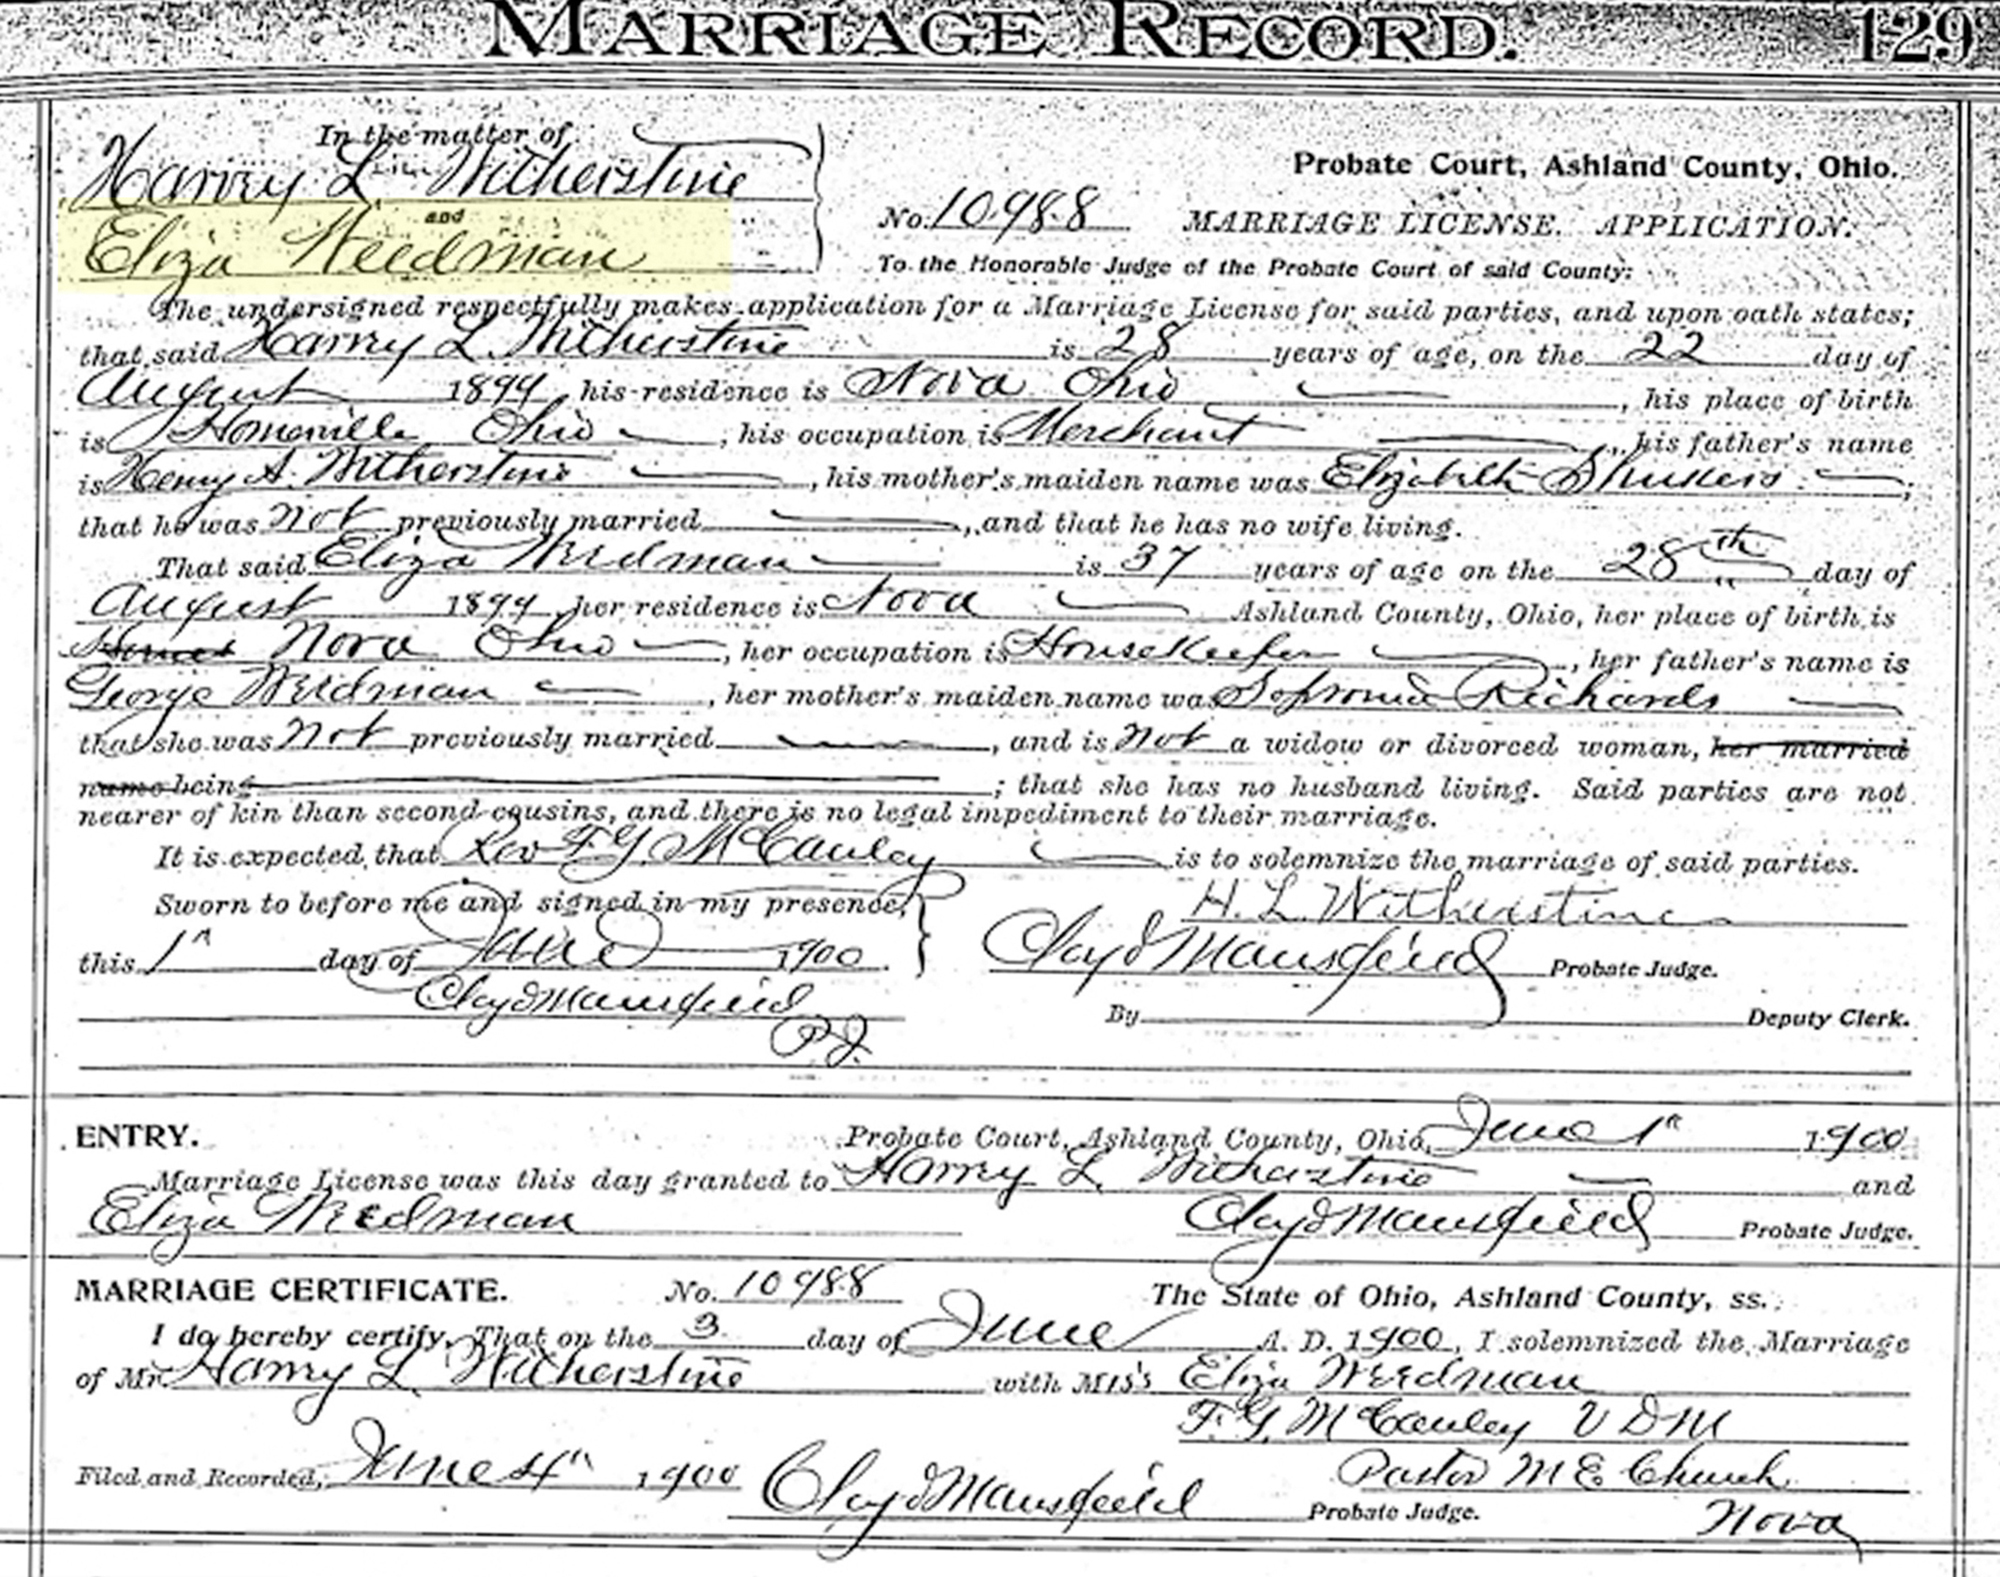 MARRIAGE RECORD. 129
In the matter of
Harry L. Witherstine
and
Eliza Weedman
Probate Court, Ashland County, Ohio.
No. 10988 MARRIAGE LICENSE. APPLICATION.
To the Honorable Judge of the Probate Court of said County:
The undersigned respectfully makes application for a Marriage License for said parties, and upon oath states;
that said Harry L. Witherstine is 28 years of age, on the 22 day of
August 1899, his residence is Nova Ohio, his place of birth
is Homerville Ohio; his occupation is Merchant, his father's name
is Henry A. Witherstine, his mother's maiden name was Elizabeth;
that he was Not previously married, and that he has no wife living.
That said Eliza Weedman is 37 years of age on the 28th day of
August 1899 her residence is Nova Ashland County, Ohio, her place of birth is
Nova Ohio, her occupation is HouseKeeper, her father's name is
George Weedman, her mother's maiden name was Sophronia Richards
that she was Not previously married, and is Not a widow or divorced woman, her married
name being; that she has no husband living. Said parties are not
nearer of kin than second cousins, and there is no legal impediment to their marriage.
It is expected that Rev F. G. McCauley is to solemnize the marriage of said parties.
Sworn to before me and signed in my presence,
H. L. Witherstine
this 1" day of June 1900.
Cloyd Mansfield Probate Judge.
Cloyd Mansfield
P.J.
By Deputy Clerk.
ENTRY. Probate Court, Ashland County, Ohio, June 1" 1900
Marriage License was this day granted to Harry L. Witherstine and
Eliza Weedman Cloyd Mansfield Probate Judge.
MARRIAGE CERTIFICATE. No. 10988 The State of Ohio, Ashland County, ss.
I do hereby certify, That on the 3 day of June A. D. 1900, I solemnized the Marriage
of Mr. Harry L. Witherstine with Miss Eliza Weedman
F. G. McCauley V D M
Pastor M E Church
Nova
Filed and Recorded, June 4" 1900 Cloyd Mansfield Probate Judge.